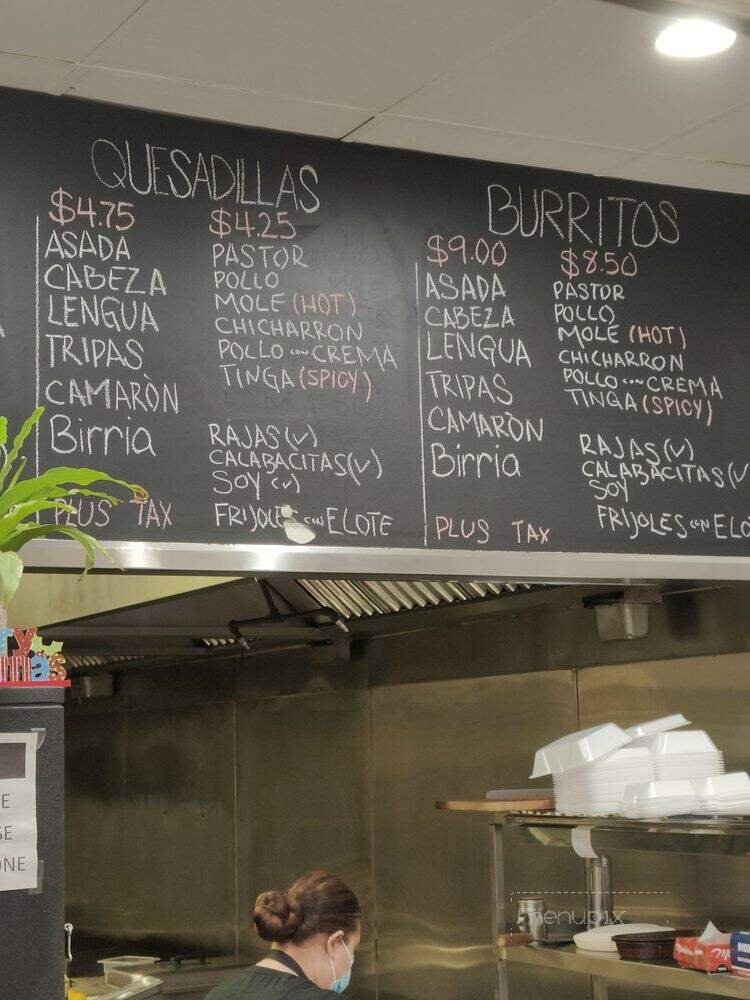 QUESADILLAS
$4.75
ASADA
CABEZA
LENGUA
TRIPAS
CAMARÒN
Birria
PLUS TAX
$4.25
PASTOR
POLLO
MOLE (HOT)
CHICHARRON
POLLO CON CREMA
TINGA (SPICY)
RAJAS (V)
CALABACITAS (V)
SOY (V)
FRIJOLES CON ELOTE
BURRITOS
$9.00
ASADA
CABEZA
LENGUA
TRIPAS
CAMARÒN
Birria
PLUS TAX
$8.50
PASTOR
POLLO
MOLE (HOT)
CHICHARRON
POLLO CON CREMA
TINGA (SPICY)
RAJAS (V)
CALABACITAS (V
SOY
FRIJOLES CON ELO
menupix